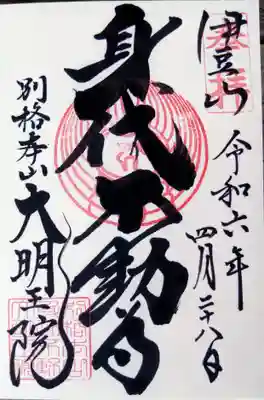 奉拝
伊豆山
令和六年四月二十八日
身代不動尊
別格本山大明王院